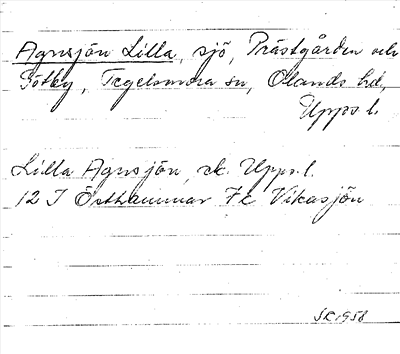 Agnsjön Lilla, sjö, Prästgården och
Götby, Tegelsmora sn, Olands hd,
Upps l.
Lilla Agnsjön, ek. Upps. l.
12 I Östhammar Fk Vikasjön
SR 1958